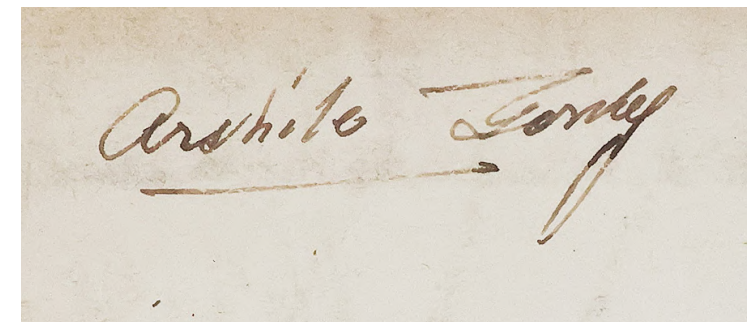 Arshile Gorky